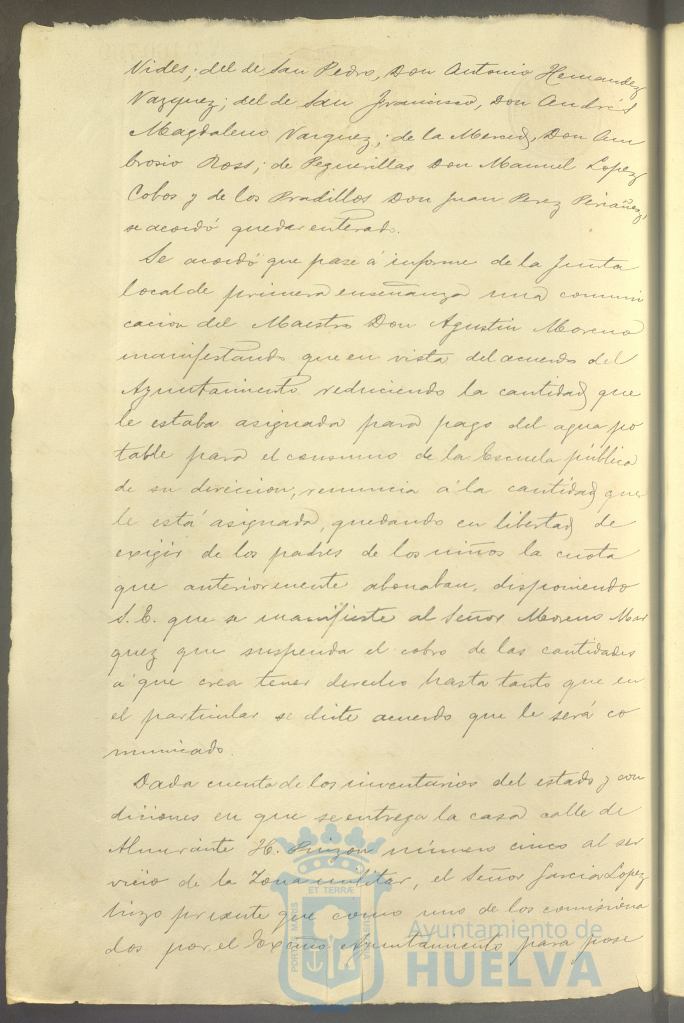 Vides; del de San Pedro, Don Antonio Hernandez
Vazquez; del de San Francisco, Don Andrés
Magdaleno Vazquez; de la Merced, Don Am
brosio Ross; de Peguerillas Don Manuel Lopez
Cobos y de los Pradillos Don Juan Perez Periañez,
se acordó quedar enterado.
Se acordó que pase á informe de la Junta
local de primera enseñanza una comuni
cacion del Maestro Don Agustin Moreno
manifestando que en vista del acuerdo del
Ayuntamiento reduciendo la cantidad que
le estaba asignada para pago del agua po
table para el consumo de la Escuela pública
de su direccion, renuncia á la cantidad que
le está asignada, quedando en libertad de
exigir de los padres de los niños la cuota
que anteriormente abonaban, disponiendo
S. E. que se manifieste al Señor Moreno Mar
quez que suspenda el cobro de las cantidades
á que crea tener derecho hasta tanto que en
el particular se dicte acuerdo que le será co
municado.
Dada cuenta de los inventarios del estado y con
diciones en que se entrega la casa calle de
Almirante H. Pinzon número cinco al ser
vicio de la Zona militar, el Señor Garcia Lopez
hizo presente que como uno de los comisiona
dos por el Excmo Ayuntamiento para pose
ET TERRÆ
PORTUS MARIS
CUSTODIA
Ayuntamiento de
HUELVA